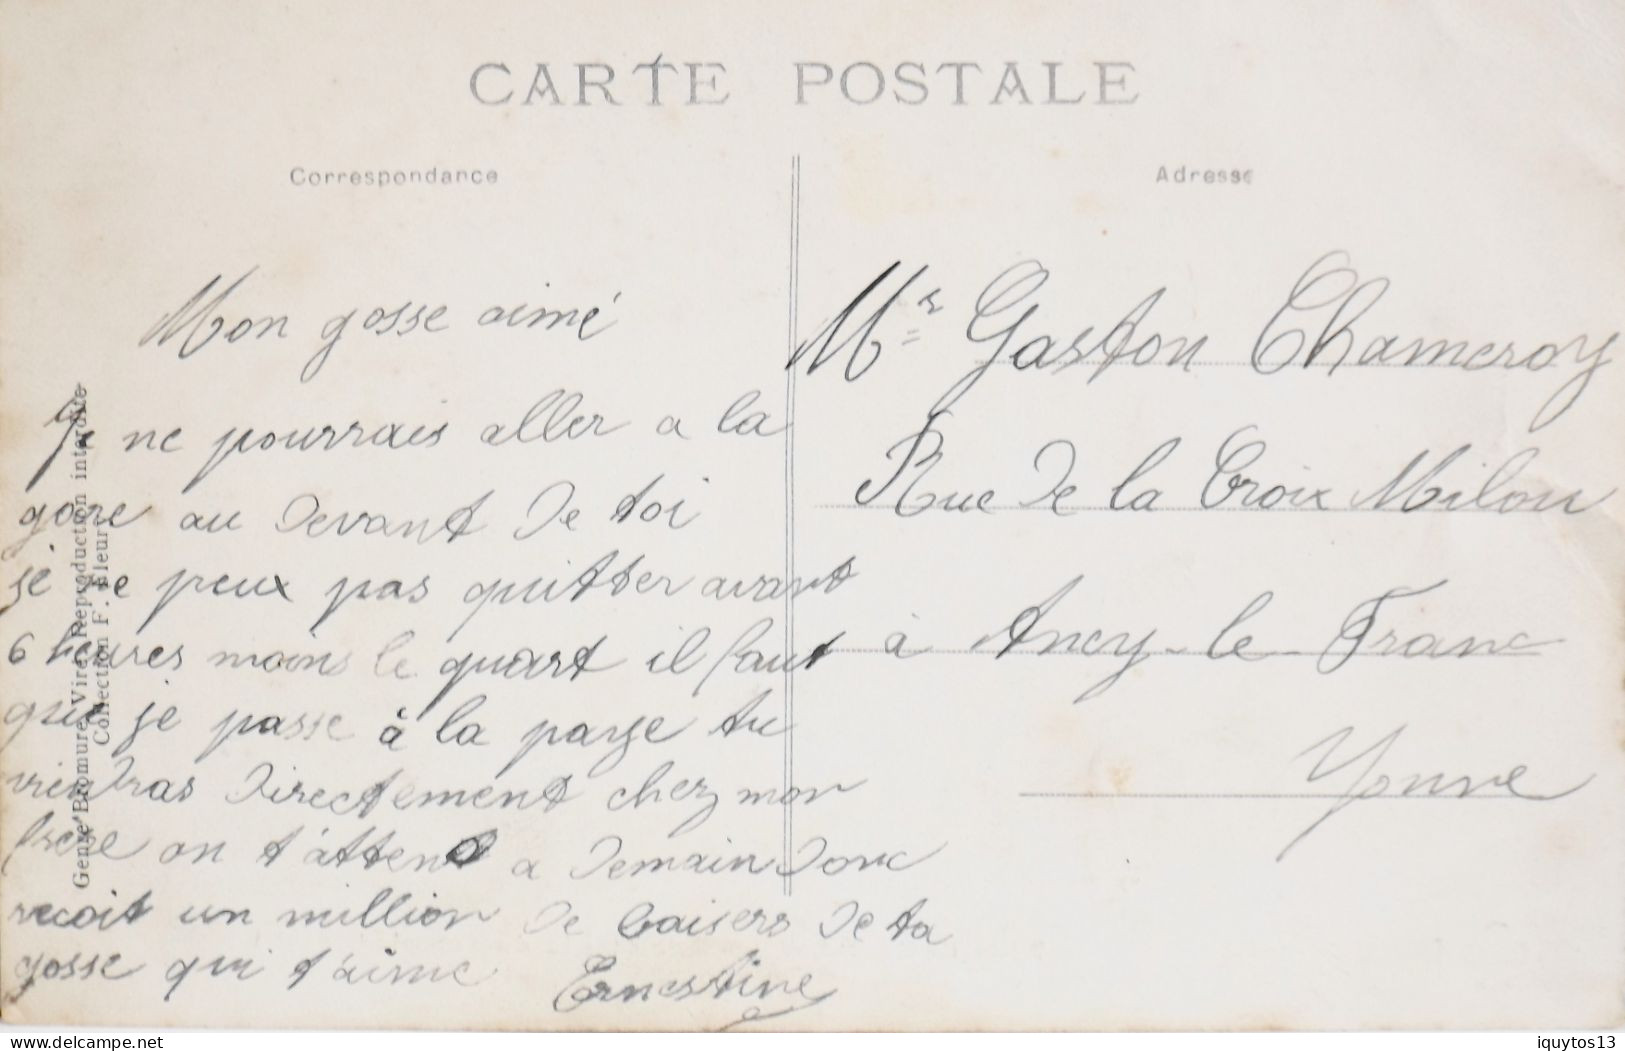 CARTE POSTALE
Correspondance
Adresse
Mon gosse aimé
Je ne pourrais aller a la
gare au devant de toi
je ne peux pas quitter avant
6 heures moins le quart il faut
que je passe à la paye tu
viendras directement chez mon
frere on t'attend a demain donc
recoit un million de baisers de ta
gosse qui t'aime Ernestine
Mr Gaston Chameroy
Rue de la Croix Milon
à Ancy-le-Franc
Yonne
Genre Bromure, Vire, Reproduction interdite
Collection F. Fleury
delcampe.net
iquytos13